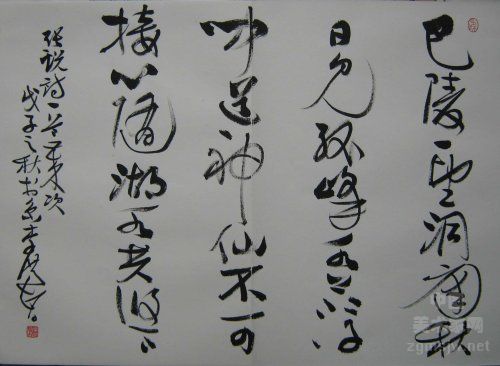 巴陵一望洞庭秋
日见孤峰水上浮
闻道神仙不可
接心随湖水共悠悠
张说诗一首
戊子之秋于